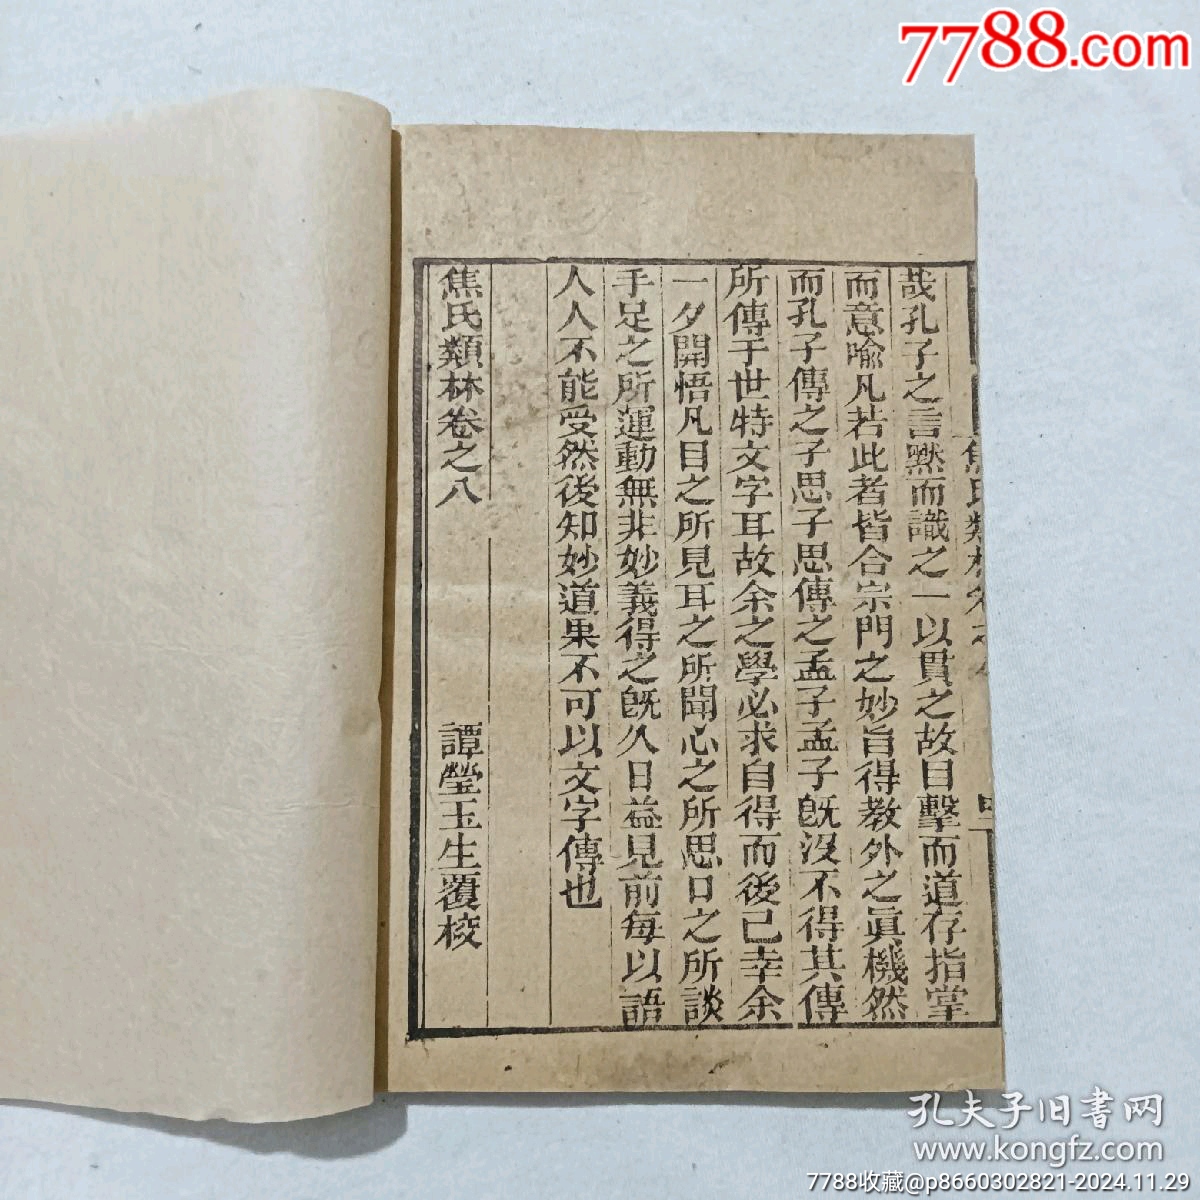 7788.com
哉孔子之言默而識之一以貫之故目擊而道存指掌
而意喻凡若此者皆合宗門之妙旨得教外之眞機然
而孔子傳之子思子思傳之孟子孟子旣沒不得其傳
所傳于世特文字耳故余之學必求自得而後已幸余
一夕開悟凡目之所見耳之所聞心之所思口之所談
手足之所運動無非妙義得之旣久日益見前每以語
人人不能受然後知妙道果不可以文字傳也
焦氏類林卷之八 譚瑩玉生覆校
焦氏類林卷之八
孔夫子旧書网
www.kongfz.com
7788收藏@p8660302821-2024.11.29